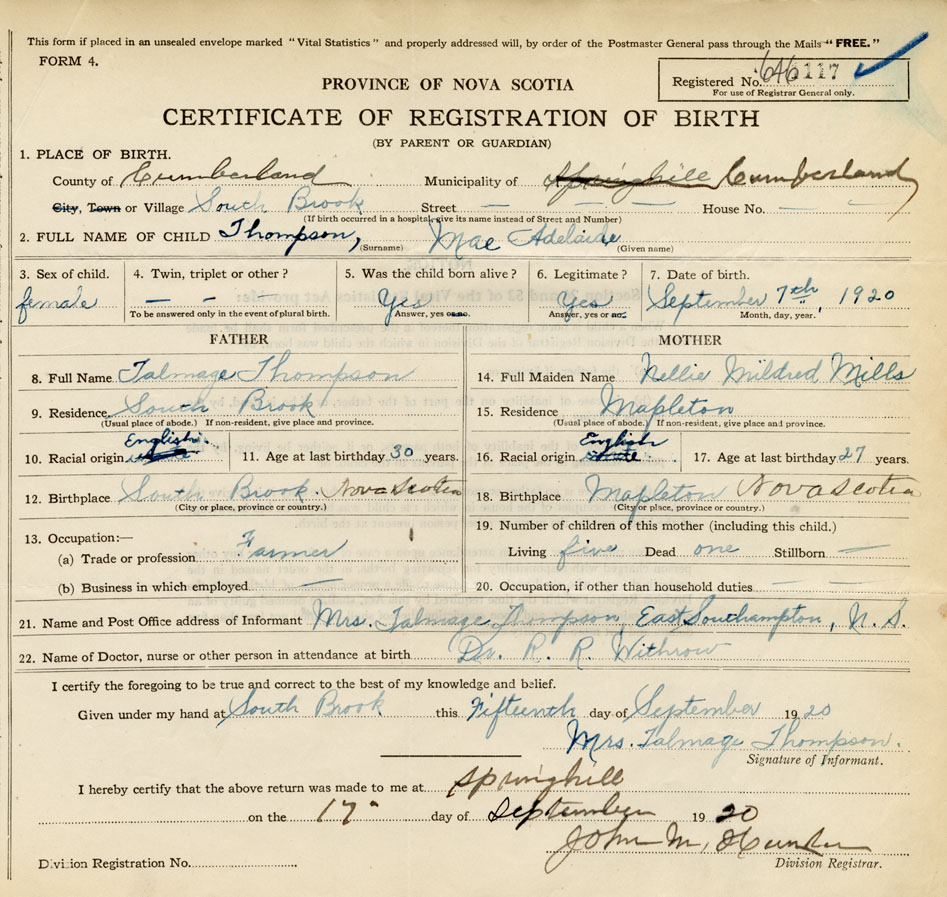 This form if placed in an unsealed envelope marked "Vital Statistics" and properly addressed will, by order of the Postmaster General pass through the Mails "FREE."
FORM 4.
PROVINCE OF NOVA SCOTIA
Registered No. 646117
For use of Registrar General only.
CERTIFICATE OF REGISTRATION OF BIRTH
(BY PARENT OR GUARDIAN)
1. PLACE OF BIRTH.
County of Cumberland Municipality of Springhill Cumberland
City, Town or Village South Brook Street — — — House No. — —
(If birth occurred in a hospital, give its name instead of Street and Number)
2. FULL NAME OF CHILD Thompson, (Surname) Mae Adelaide (Given name)
3. Sex of child. 4. Twin, triplet or other? 5. Was the child born alive? 6. Legitimate? 7. Date of birth.
female — — — Yes Yes September 7th, 1920
To be answered only in the event of plural birth. Answer, yes or no. Answer, yes or no. Month, day, year.
FATHER MOTHER
8. Full Name Talmage Thompson 14. Full Maiden Name Nellie Mildred Mills
9. Residence South Brook 15. Residence Mapleton
(Usual place of abode.) If non-resident, give place and province. (Usual place of abode.) If non-resident, give place and province.
10. Racial origin English 11. Age at last birthday 30 years. 16. Racial origin English 17. Age at last birthday 27 years.
12. Birthplace South Brook. Nova Scotia 18. Birthplace Mapleton Nova Scotia
(City or place, province or country.) (City or place, province or country.)
13. Occupation:— 19. Number of children of this mother (including this child.)
(a) Trade or profession Farmer Living five Dead one Stillborn —
(b) Business in which employed — 20. Occupation, if other than household duties — —
21. Name and Post Office address of Informant Mrs. Talmage Thompson, East Southampton, N. S.
22. Name of Doctor, nurse or other person in attendance at birth Dr. R. R. Withrow
I certify the foregoing to be true and correct to the best of my knowledge and belief.
Given under my hand at South Brook this Fifteenth day of September 1920
Mrs. Talmage Thompson.
Signature of Informant.
I hereby certify that the above return was made to me at Springhill
on the 17" day of September 1920
John M. Hunter
Division Registration No. Division Registrar.